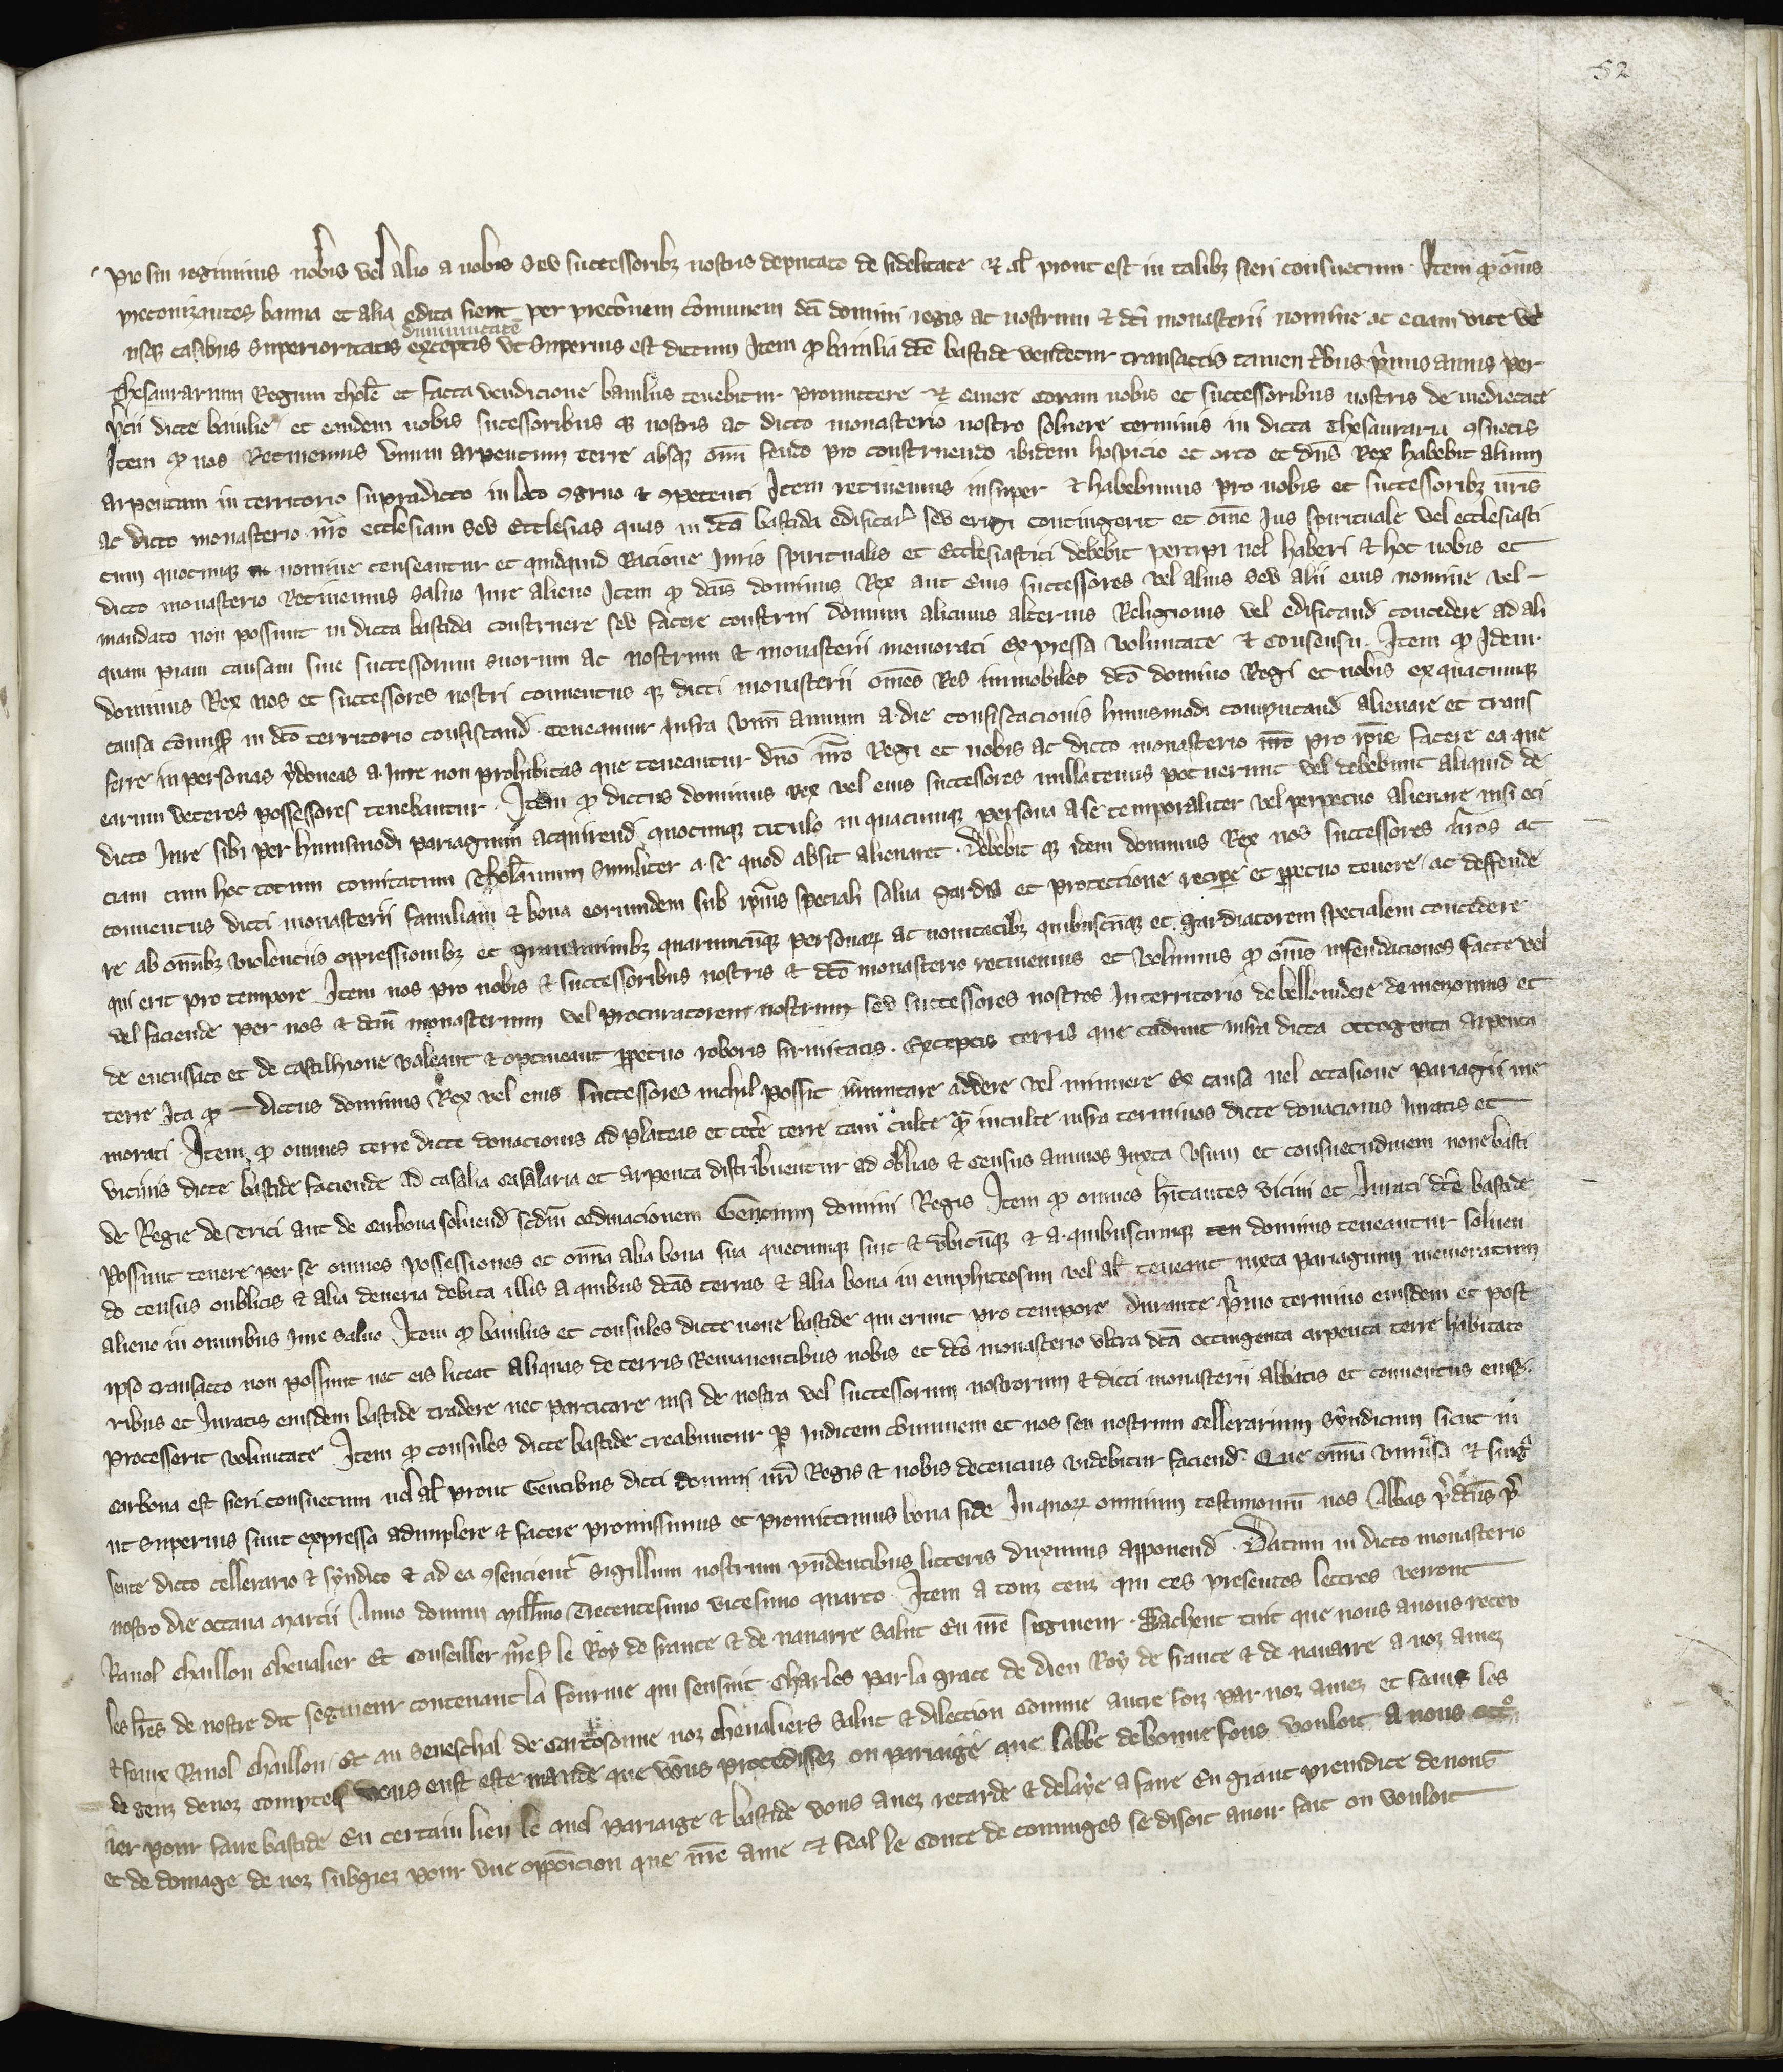 52
pro sui regiminis nobis vel alio a nobis seu successoribz nostris deputato de fidelitate et al prout est in talibz fieri consuetum. Item qd oms
preconizantes banna et alia edita fient per preconem comunem dci domini regis ac nostrum et dci monasterii nomine ac etiam vice
dununtate
usqz casibus superioritatis exceptis ut superius est dictum Item qd baiulia dce bastide vendetur transactis tamen tbus pmis annis per
Thesaurarium Regium thole et facta vendicione baiulus tenebitur promittere et cavere coram nobis et successoribus nostris de medietate
pcii dicte baiulie et eandem nobis sucessoribus qz nostris ac dicto monasterio nostro solvere terminis in dicta thesauraria 9suetis
Item qd nos Retinemus unum arpentum terre absqz omni feudo pro construendo ibidem hospicio et orto et dns Rex habebit alium
arpentum in territorio supradicto in loco 9gruo et 9petenti Item retinemus insuper et habebimus pro nobis et successoribz nris
ac dicto monasterio nro ecclesiam seu Ecclesias quas in dca bastida edificari seu erigi contingerit et ome Jus spirituale vel ecclesiasti
cum quocunqz nomine censeantur et quidquid Racione Juris spiritualis et Ecclesiastici debebit percipi vel haberi et hoc nobis et
dicto monasterio Retinemus salvo Jure alieno Item qd dcus dominus Rex aut Eius successores vel alius seu alii eius nomine vel
mandato non possint in dicta bastida construere seu facere construi domum alicuius alterius Religionis vel edificand concedere ad ali
quam piam causam sine successorum suorum ac nostrum et monasterii memorati Expressa voluntate et consensu. Item qd Idem
dominus Rex nos et successores nostri conventus qz dicti monasterii omes Res immobiles dco domino Regi et nobis ex quacunqz
causa comiss in dco territorio confiscand teneamur Infra unum annum a die confiscacionis huiusmodi computand alienare et trans
ferre in personas ydoneas a Jure non prohibitas que teneantur dno nro Regi et nobis ac dicto monasterio nro pro ipis facere ea que
earum veteres possessores tenebantur. Item qd dictus dominus Rex vel eius successores nullatenus potuerunt vel debebunt aliquid de
dicto Jure sibi per huiusmodi pariagium acquirend quocunqz titulo in quacunqz persona a se temporaliter vel perpetuo alienare nisi eci
ciam cum hoc totum comitatum Tholanum similiter a se quod absit alienaret. Debebit qz idem dominus Rex nos successores nros ac
conventus dicti monasterii familiam et bona eorumdem sub ipius speciali salva gardia et proteccione recipe et ppetuo tenere ac deffende
re ab omibz violentiis oppressionibz et gravaminibz quarumcunqz personarz ac novitatibz quibuscunqz et gardiatorem specialem concedere
qui erit pro tempore Item nos pro nobis et successoribus nostris et dco monasterio retinemus et volumus qd omes infeudaciones facte vel
vel faciende per nos et dcum monasterium vel procuratorem nostrum seu successores nostros In territorio de bellouidere de menomis et
de encussaco et de castilhione valeant et optineant ppetuo roboris firmitatis. Exceptis terris que cadunt infra dicta octogenta arpenta
terre Ita qd dictus dominus Rex vel eius successores nichil possit immutare addere vel minuere Ex causa vel occasione pariagii me
morati. Item qd omnes terre dicte donacionis ad plateas et cetere terre tam culte q inculte infra terminos dicte donacionis Juratis et
vicinis dicte bastide faciende ad casalia casalaria et arpenta distribuentur ad oblias et census annuos Juxta usum et consuetudinem nove basti
de Regie de Trici aut de carbona solvend scdm ordinacionem Gencium domini Regis Item qd omnes hitantes vicini et Jurati dce bastide
possint tenere per se omnes possessiones et omia alia bona sua quecunqz sint et ubicunqz et a quibuscunqz ten dominis teneantur solven
do census oublicis et alia deueria debita illis a quibus dcas terras et alia bona in emphiteosim vel al teneant iuxta pariagium memoratum
alieno in omnibus Jure salvo Item qd baiulus et consules dicte noue bastide qui erunt pro tempore durante pmo termino eiusdem et post
ipso transacto non possint nec eis liceat aliquas de terris Remanentibus nobis et dco monasterio ultra dca octingenta arpenta terre habitato
ribus et Juratis eiusdem bastide tradere nec particare nisi de nostra vel successorum nostrorum et dicti monasterii abbatis et conventus eius
processerit voluntate Item qd consules dicte bastide creabuntur p Judicem comunem et nos seu nostrum cellerarium syndicum sicut in
carbona est fieri consuetum vel al prout Gentibus dicti domini nri Regis et nobis decencius videbitur faciend. Que omia universa et singla
ut superius sunt expressa adimplere et facere promissimus et promittimus bona fide In quorz omnium testimonium nos Abbas pdcus pre
sente dicto cellerario et syndico et ad ea 9sencient sigillum nostrum presentibus litteris duximus apponend. Datum in dicto monasterio
nostro die octava marcii Anno domini millimo Trecentesimo vicesimo quarto. Item a touz ceuz qui ces presentes lettres verront
Raoul Chaillou Chevalier Et Conseiller nres le Roy de france et de navarre salut En nre seigneur. Sachent tuit que nous avons receu
les lres de nostre dit seigneur contenant la fourme qui sensuit Charles par la grace de dieu Roy de france et de navarre a noz amez
et feaux Raoul Chaillou Et au Seneschal de Carcosonne noz chevaliers salut et dilection Comme autre foiz par noz amez et feaus les
de genz de noz comptes vous eust este mande que vous procedissez ou pariaige que labbe de bonne fons vouloit a nous
ier pour faire bastide En certain lieu le quel pariaige et bastide vous avez retarde et delaye a faire En grant preiudice de nous
et de domage de noz subgiez pour une opposicion que nre ame et feal le Conte de cominges se disoit avoir fait ou vouloit